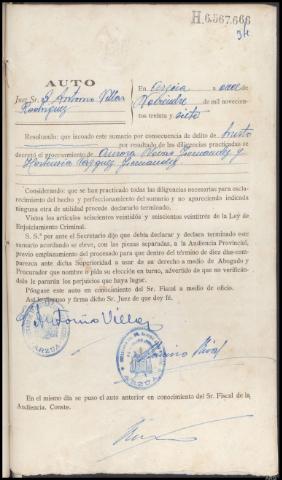 H.6.567.666
AUTO
Juez Sr. D. Antonio Villar
Rodriguez
En Arzúa a once de
Noviembre de mil novecien-
tos treinta y siete
Resultando: que incoado este sumario por consecuencia de delito de hurto
por resultado de las diligencias practicadas se
decretó el procesamiento de Fernandez y
Hortensia Vazquez Fernandez
Considerando: que se han practicado todas las diligencias necesarias para escla-
recimiento del hecho y perfeccionamiento del sumario y no apareciendo indicada
ninguna otra de utilidad procede declararlo terminado.
Vistos los artículos seiscientos veintidós y seiscientos veintitres de la Ley de
Enjuiciamiento Criminal.
S. S.ª por ante el Secretario dijo que debía declarar y declara terminado este
sumario acordando se eleve, con las piezas separadas, a la Audiencia Provincial,
previo emplazamiento del procesado para que dentro del término de diez días com-
parezca ante dicha Superioridad a usar de su derecho a medio de Abogado y
Procurador que nombre o pida su elección en turno, advertido de que no verificán-
dolo le pararán los perjuicios que haya lugar.
Póngase este auto en conocimiento del Sr. Fiscal a medio de oficio.
Así lo dispuso y firma dicho Sr. Juez de que doy fé.
Antonio Villar
ARZUA
ARZUA
En el mismo día se puso el auto anterior en conocimiento del Sr. Fiscal de la
Audiencia. Consta.